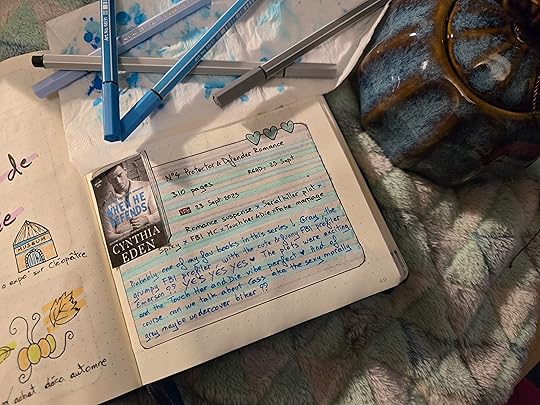 de
e
MUSEUM
expo sur Cléopâtre
achat déco automne
WHEN HE
CYNTHIA
EDEN
N°4 Protector & Defender Romance
310 pages
READ: 23 Sept
23 Sept 2025
Romance suspense > Serial killer plot >
Spicy > FBI MC > Touch Her & Die > Fake marriage
Probably one of my fav books in this series! Gray, the
grumpy FBI profiler with the cute & funny FBI profiler
Emerson?? YES YES YES ♥ The plots were exciting
and the Touch Her and Die vibe perfect ♥ And of
course can we talk about Cass aka the sexy morally
gray maybe undercover biker ??